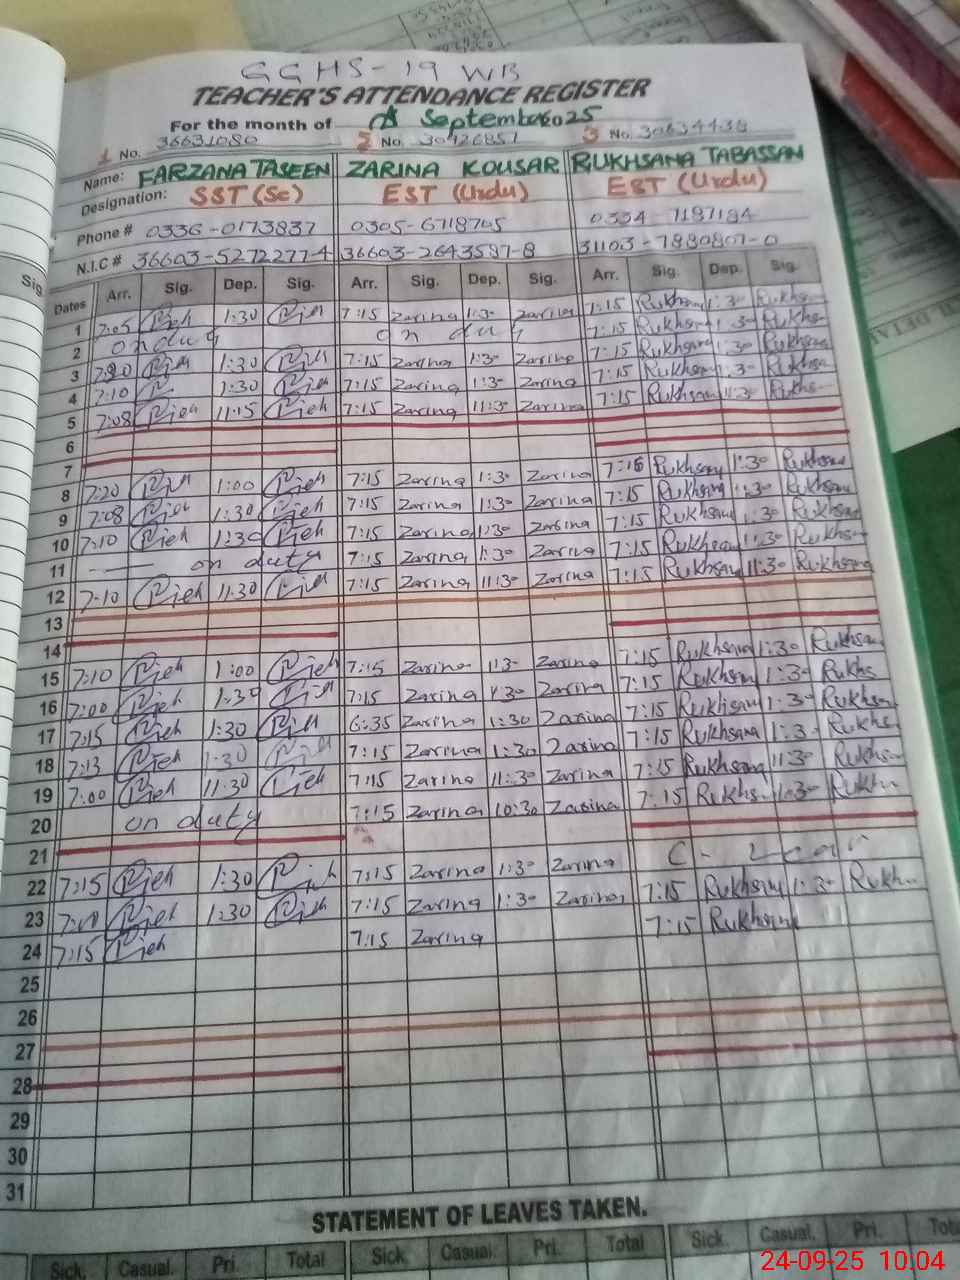 GGHS-19 WB
TEACHER'S ATTENDANCE REGISTER
For the month of September 2025
1 No. 36631080 2 No. 30426851 3 No. 30634438
Name: FARZANA TASEEN ZARINA KOUSAR RUKHSANA TABASSAN
Designation: SST (Sc) EST (Urdu) EST (Urdu)
Phone # 0336-0173837 0305-6718705 0334-7187184
N.I.C # 36603-5272277-4 36603-2643587-8 31103-7880807-0
Dates Arr. Sig. Dep. Sig. Arr. Sig. Dep. Sig. Arr. Sig. Dep. Sig.
1 7:05 1:30 7:15 Zarina 1:30 Zarina 7:15 Rukhsana 1:30 Rukhsana
2 on duty on duty 7:15 Rukhsana 1:30 Rukhsa
3 7:20 1:30 7:15 Zarina 1:30 Zarina 7:15 Rukhsana 1:30 Rukhsana
4 7:10 1:30 7:15 Zarina 1:30 Zarina 7:15 Rukhsan 1:30 Rukhsa
5 7:08 11:15 7:15 Zarina 11:30 Zarina 7:15 Rukhsana 11:30 Rukhs
6
7
8 7:20 1:00 7:15 Zarina 1:30 Zarina 7:15 Rukhsana 1:30 Rukhsana
9 7:08 1:30 7:15 Zarina 1:30 Zarina 7:15 Rukhsana 1:30 Rukhsana
10 7:10 1:30 7:15 Zarina 1:30 Zarina 7:15 Rukhsana 1:30 Rukhsa
11 on duty 7:15 Zarina 1:30 Zarina 7:15 Rukhsana 1:30 Rukhsa
12 7:10 11:30 7:15 Zarina 11:30 Zarina 7:15 Rukhsana 11:30 Rukhsana
13
14
15 7:10 1:00 7:15 Zarina 1:30 Zarina 7:15 Rukhsana 1:30 Rukhsana
16 7:00 1:30 7:15 Zarina 1:30 Zarina 7:15 Rukhsan 1:30 Rukhs
17 7:15 1:30 6:35 Zarina 1:30 Zarina 7:15 Rukhsana 1:30 Rukhsan
18 7:13 1:30 7:15 Zarina 1:30 Zarina 7:15 Rukhsana 1:30 Rukhs
19 7:00 11:30 7:15 Zarina 11:30 Zarina 7:15 Rukhsana 11:30 Rukhsa
20 on duty 7:15 Zarina 10:30 Zarina 7:15 Rukhs 1:30 Rukh
21
22 7:15 1:30 7:15 Zarina 1:30 Zarina C- Leave
23 7:00 1:30 7:15 Zarina 1:30 Zarina 7:15 Rukhsana 1:30 Rukh
24 7:15 7:15 Zarina 7:15 Rukhsana
25
26
27
28
29
30
31
STATEMENT OF LEAVES TAKEN.
Sick. Casual. Pri. Total Sick. Casual. Pri. Total Sick. Casual. Pri. Tota
24-09-25 10.04